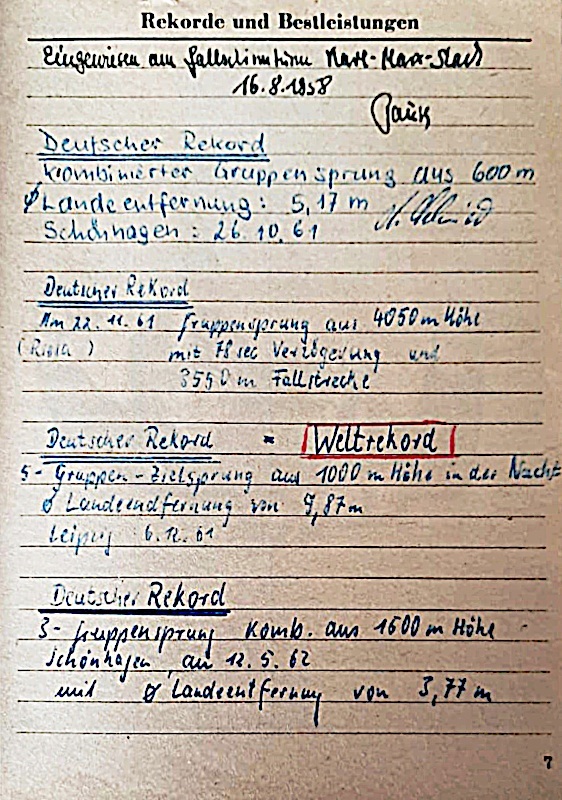 Rekorde und Bestleistungen
Eingewiesen am Fallschirmturm Karl-Marx-Stadt
16.8.1958
Deutscher Rekord
Kombinierter Gruppensprung aus 600 m
Ø Landeentfernung: 5,17 m
Schönhagen: 26.10.61
Deutscher Rekord
Am 22.11.61 Gruppensprung aus 4050 m Höhe
(Riesa) mit 78 sec Verzögerung und
3550 m Fallstrecke
Deutscher Rekord = Weltrekord
5-Gruppen-Zielsprung aus 1000 m Höhe in der Nacht
Ø Landeendfernung von 9,87m
Leipzig 6.12.61
Deutscher Rekord
3-Gruppensprung Komb. aus 1500 m Höhe
Schönhagen, am 12.5.62
mit Ø Landeentfernung von 3,77 m
7